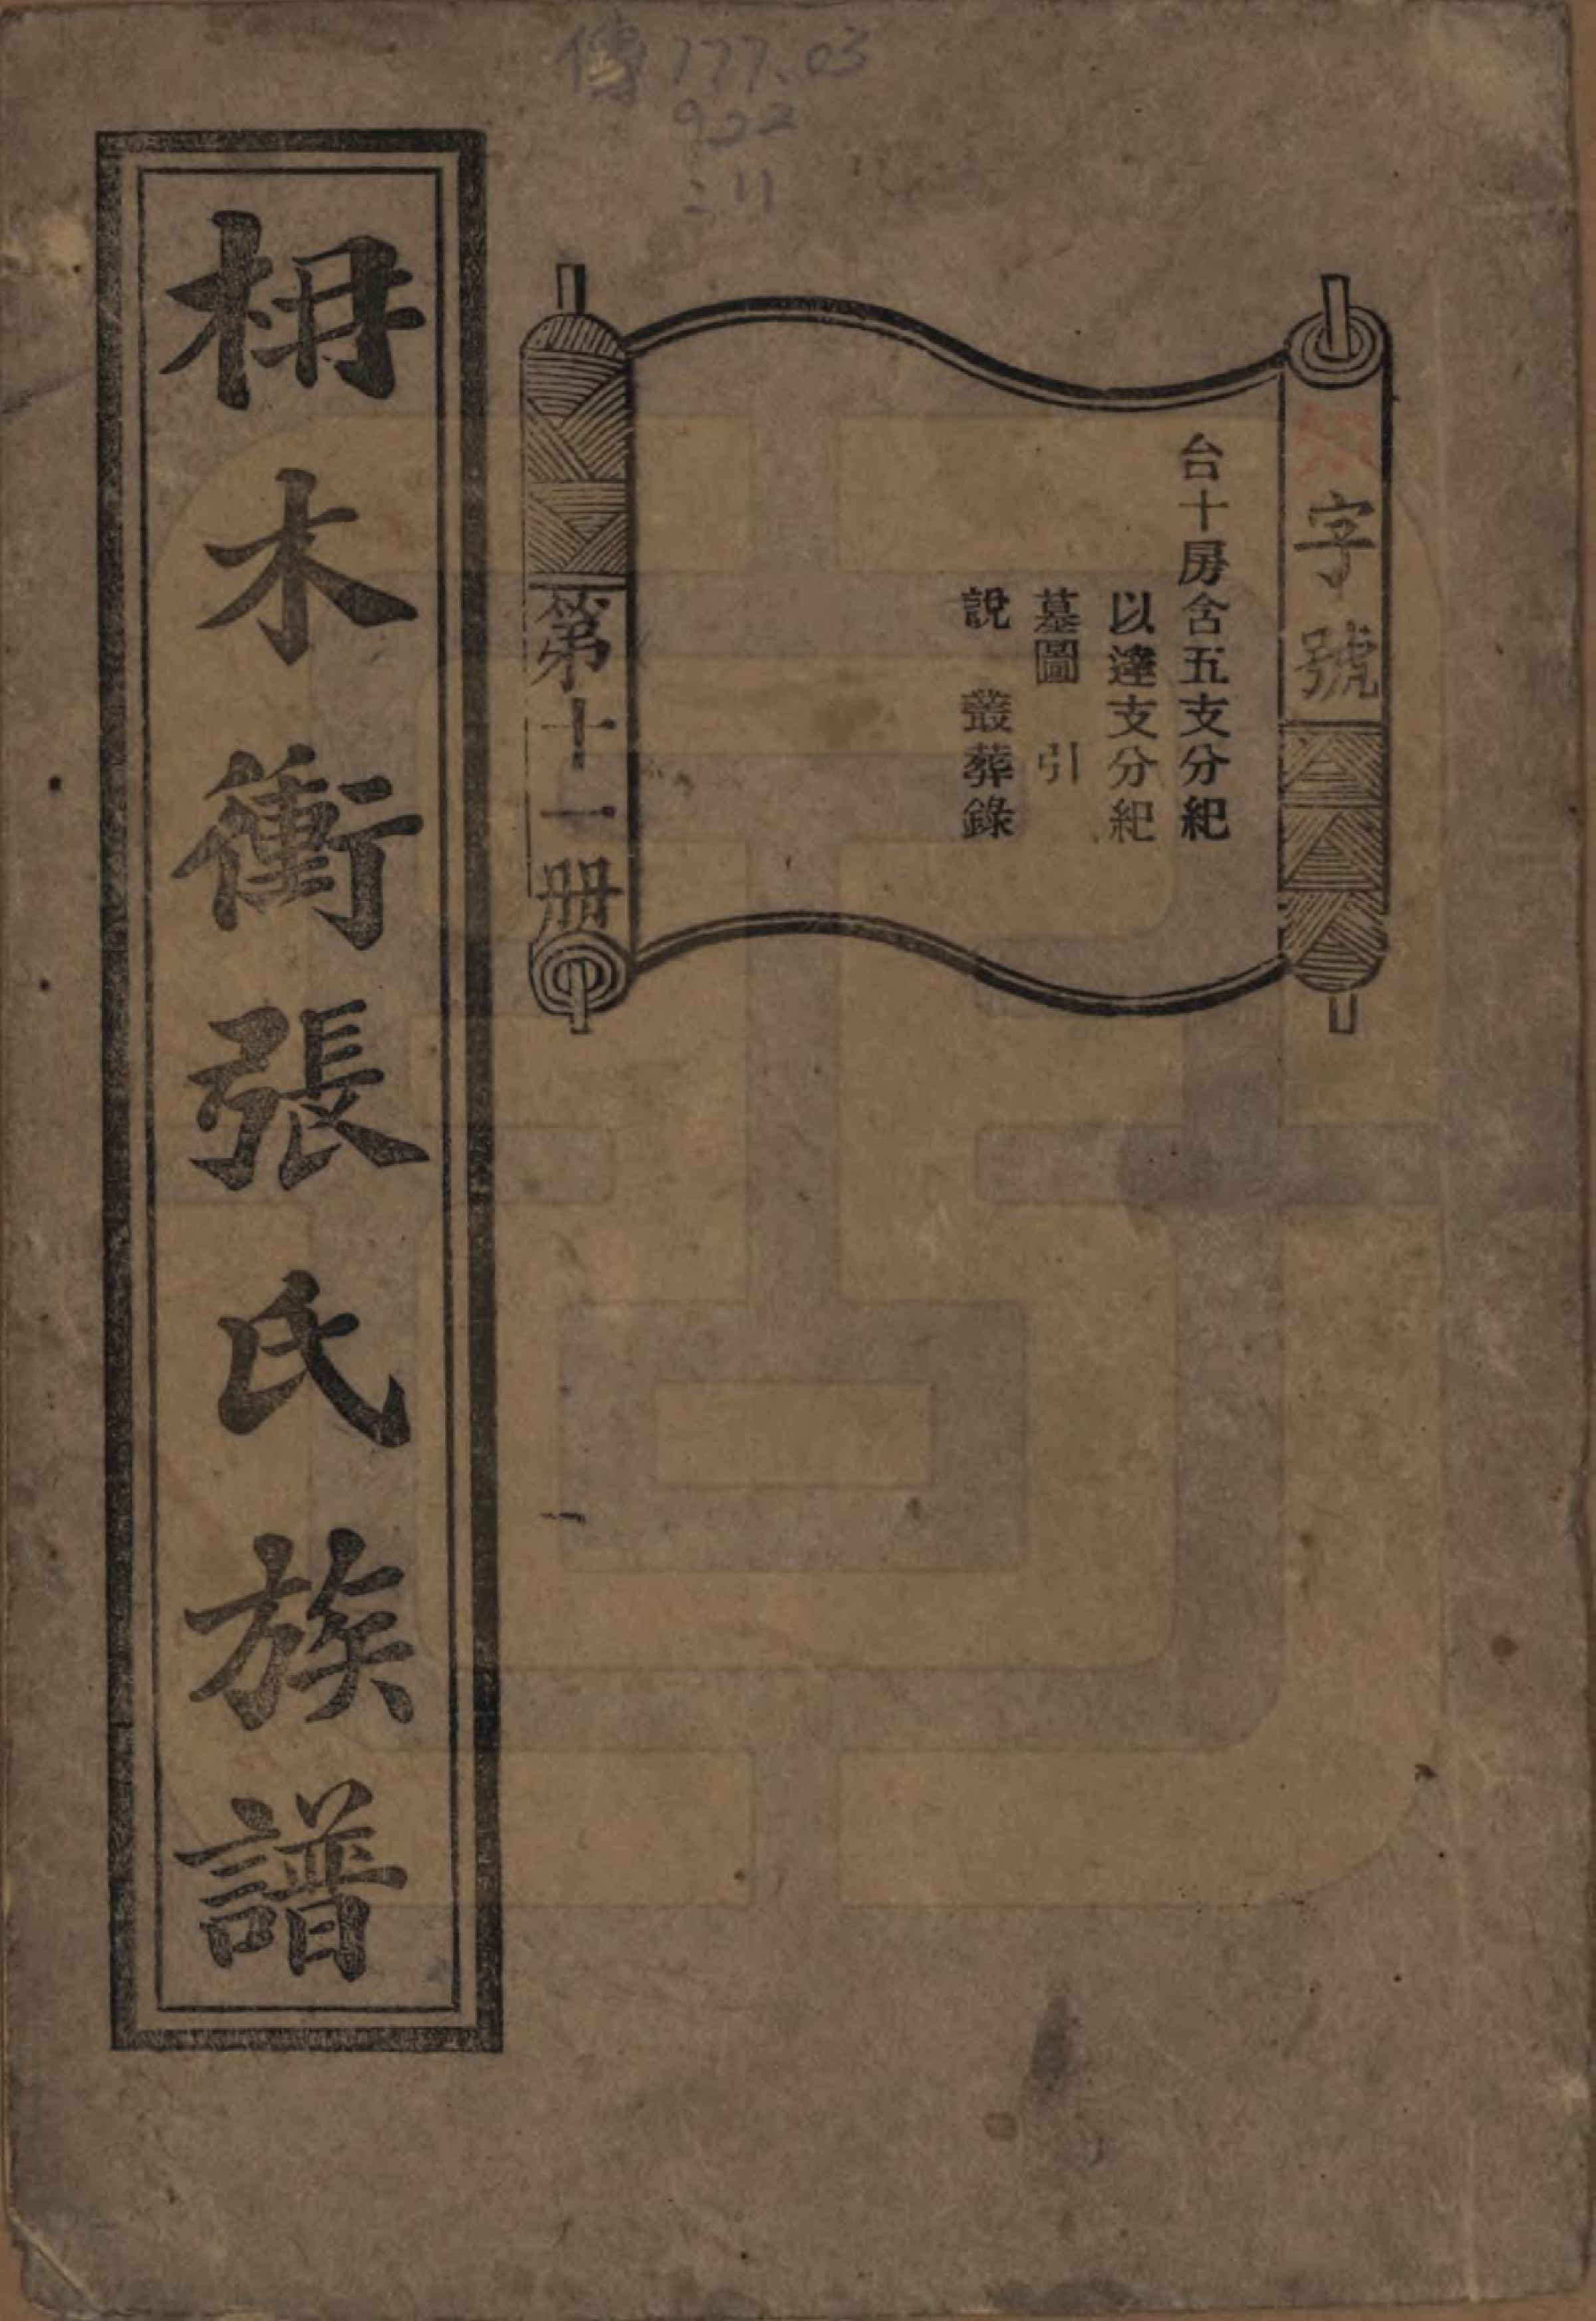 傳777.03
922
:11
字號
台十房含五支分紀
以達支分紀
墓圖 引
說 叢葬錄
第十一册
枏木衝張氏族譜